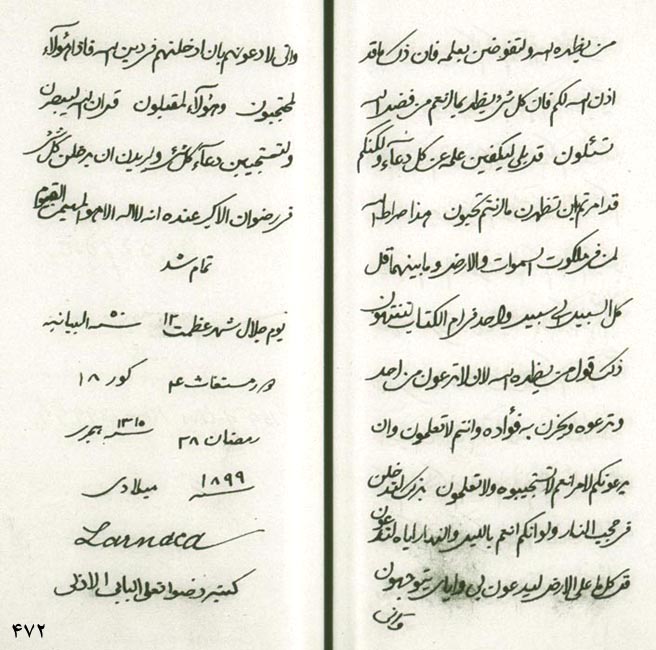 من يظهره الله ولتفوضن بعلمه فان ذلك ما قد
اذن الله لكم فان كل شیء يظهر بما انتم من فضل الله
تسئلون قد بلی ليكفين علمه عن كل دعاء ولكنكم
قد امرتم بان تظهرن ما انتم تحبون هذا صراط الله
لمن فی ملكوت السموات والارض وما بينهما قل
كل السبيل الی سبيل واحد فی ام الكتاب لتنتهون
ذلك قول من يظهره الله لان لا ترعون من احد
وترعوه ويحزن به فؤاده وانتم لا تعلمون وان
يدعونكم لامر انتم لا تستجيبوه ولا تعلمون بذلك لتدخلن
فی حجب النار ولو انكم انتم بالليل والنهار اياه لتدعون
قل كل ما علی الارض ليدعون بی وايای يتوجهون
وانی
وانی لادعونهم بان ادخلنهم فی دين الله فاذا هؤلاء
لمحتجبون وهؤلاء لمقبلون قد ان الله
ولتستجيبن دعاء كل شیء ولريدن ان يدخلن كل شیء
فی رضوان الاكبر عنده انه لا اله الا هو المهيمن القيوم
تمام شد
يوم جلال شهر عظمت ١٢ سنه ٥٠ البيانيه
در مستغاث ۴ كور ١٨
رمضان ٢٨ سنه ١٣١٥ هجری
سنه ١٨٩٩ ميلادی
Larnaca
كتبه رضوانعلی البيانی الازلی
۴۷۲